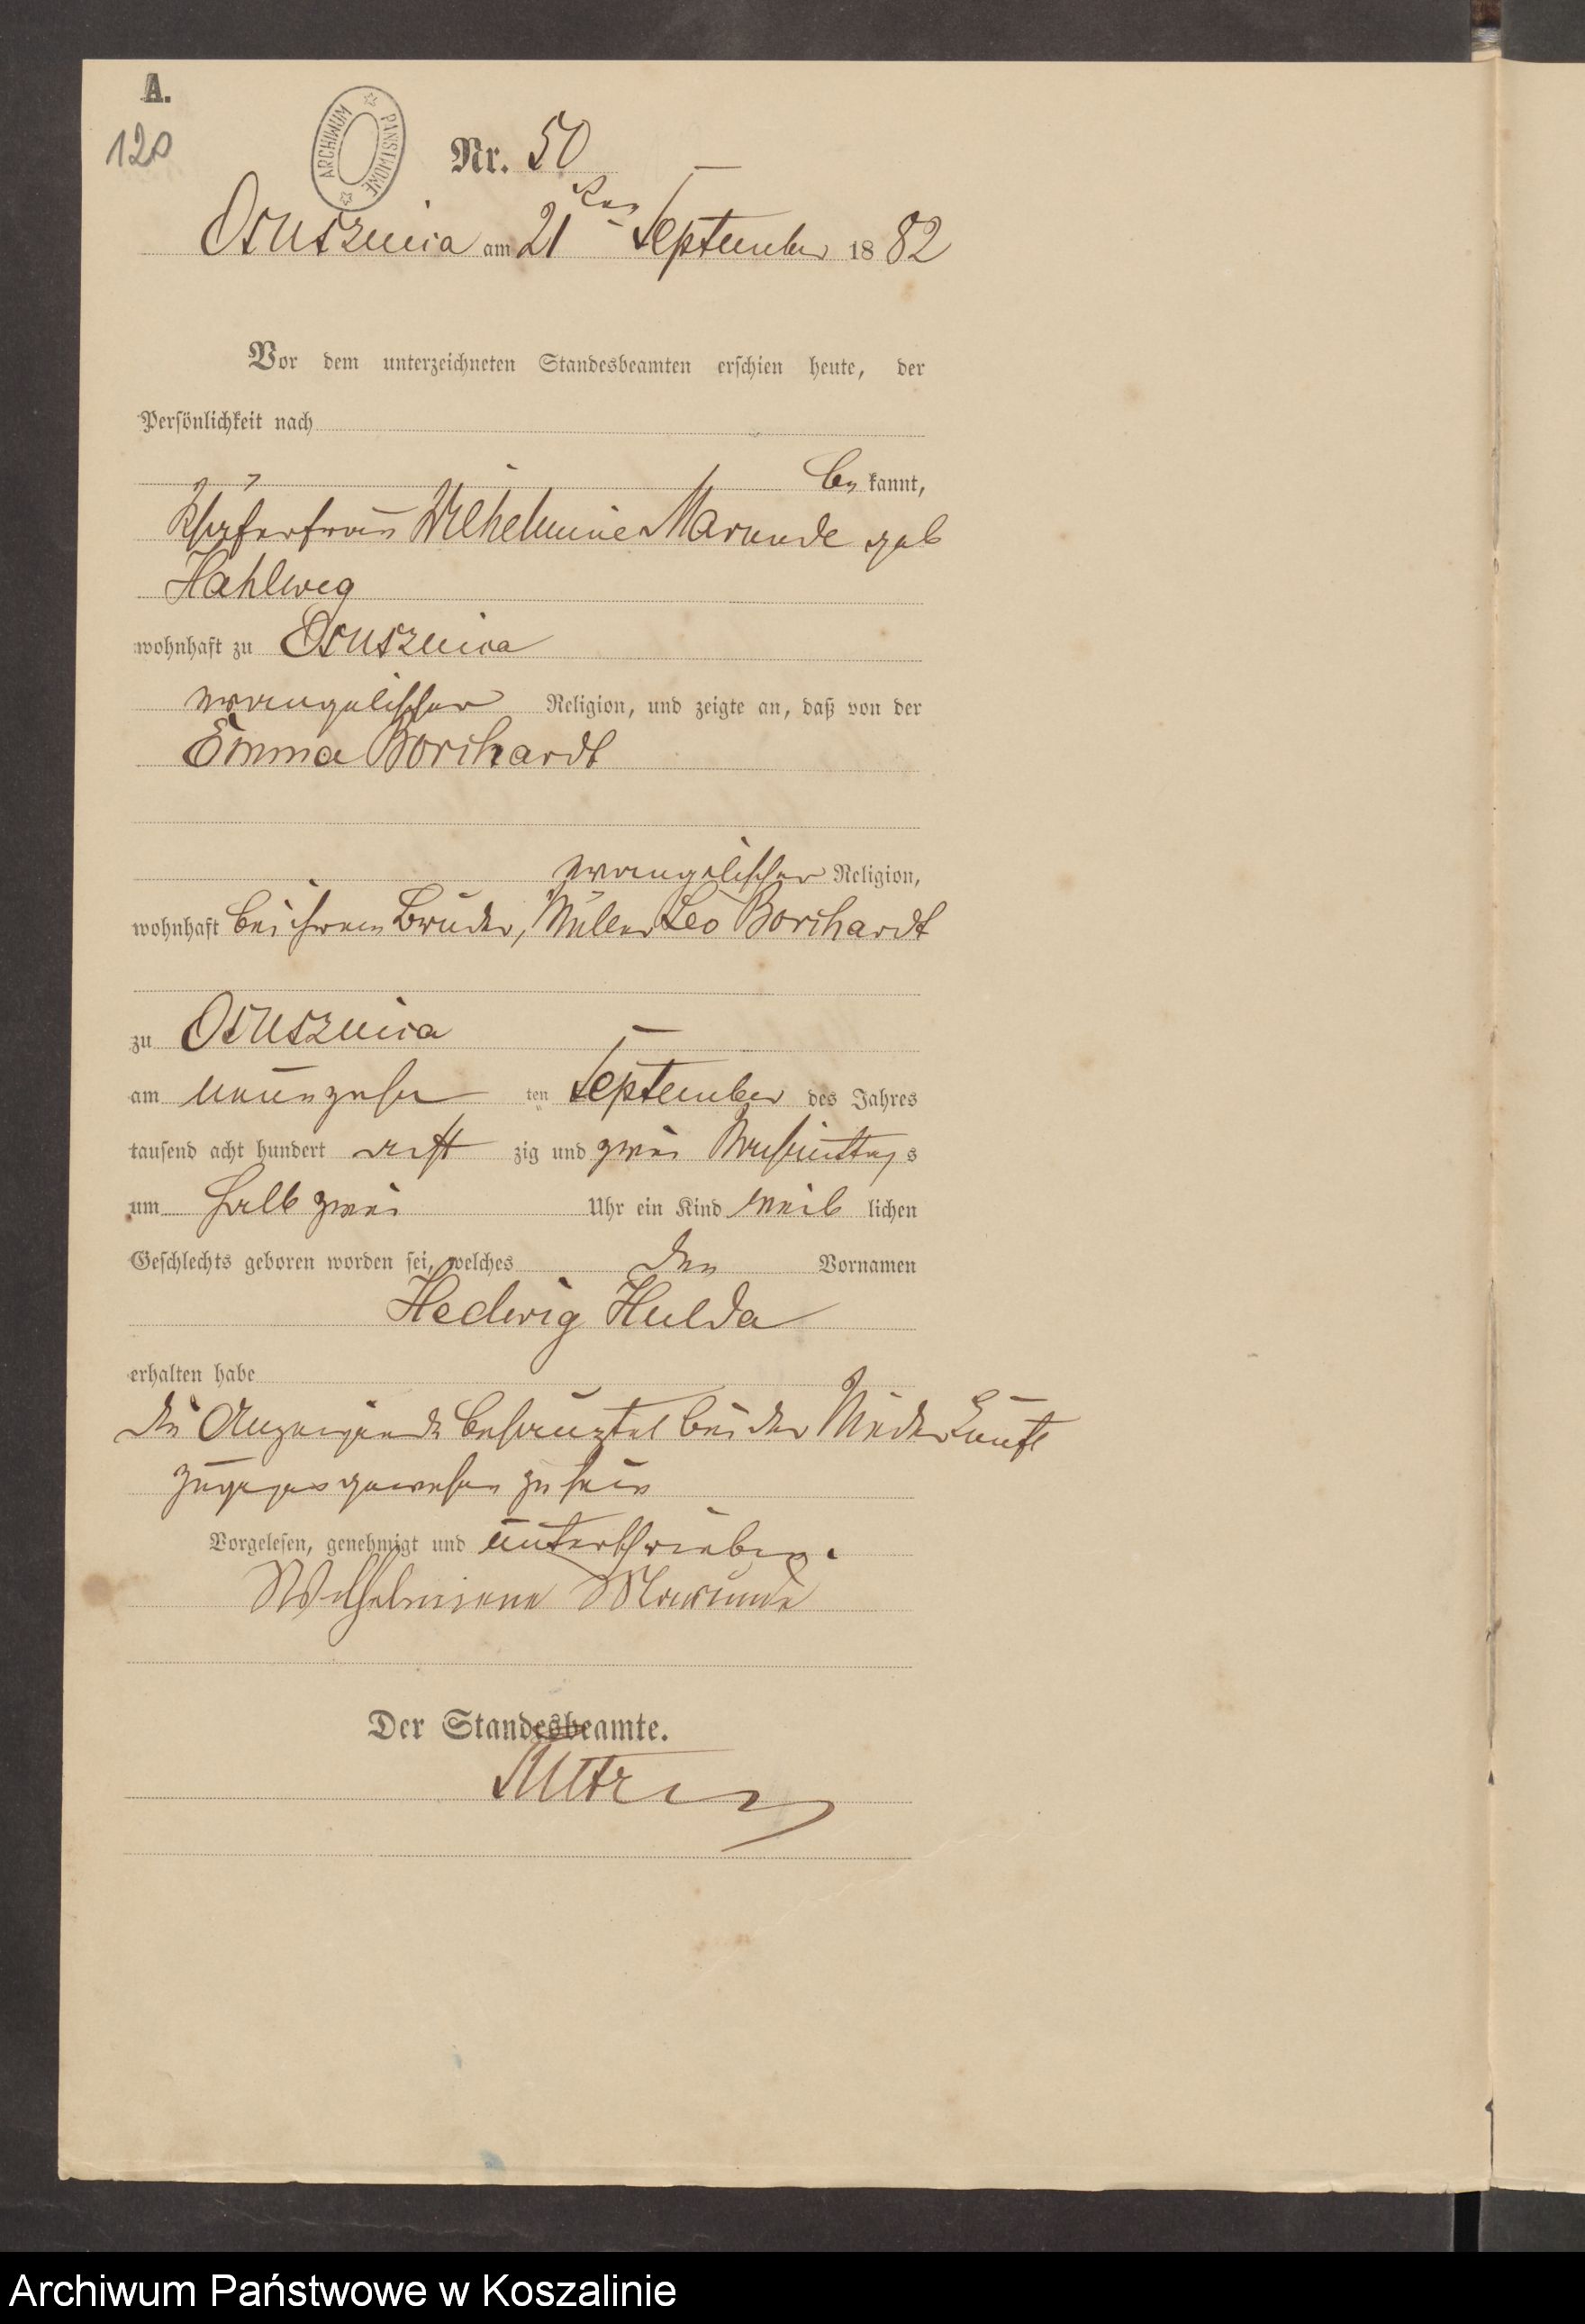 A.
120
ARCHIWUM PAŃSTWOWE
Nr. 50
Osusznica am 21ten September 1882
Vor dem unterzeichneten Standesbeamten erschien heute, der
Persönlichkeit nach
be kannt,
Schäferfrau Wilhelmine Marunde geb
Hahlweg
wohnhaft zu Osusznica
evangelischer Religion, und zeigte an, daß von der
Emma Borchardt
evangelischer Religion,
wohnhaft bei ihrem Bruder, Müller Leo Borchardt
zu Osusznica
am neunzehn ten September des Jahres
tausend acht hundert acht zig und zwei Nachmittags
um halb zwei Uhr ein Kind weib lichen
Geschlechts geboren worden sei, welches den Vornamen
Hedwig Hulda
erhalten habe
die Anzeigende behauptet bei der Niederkunft
zugegen gewesen zu sein
Vorgelesen, genehmigt und unterschrieben.
Wilhelmiene Marunde
Der Standesbeamte.
Archiwum Państwowe w Koszalinie